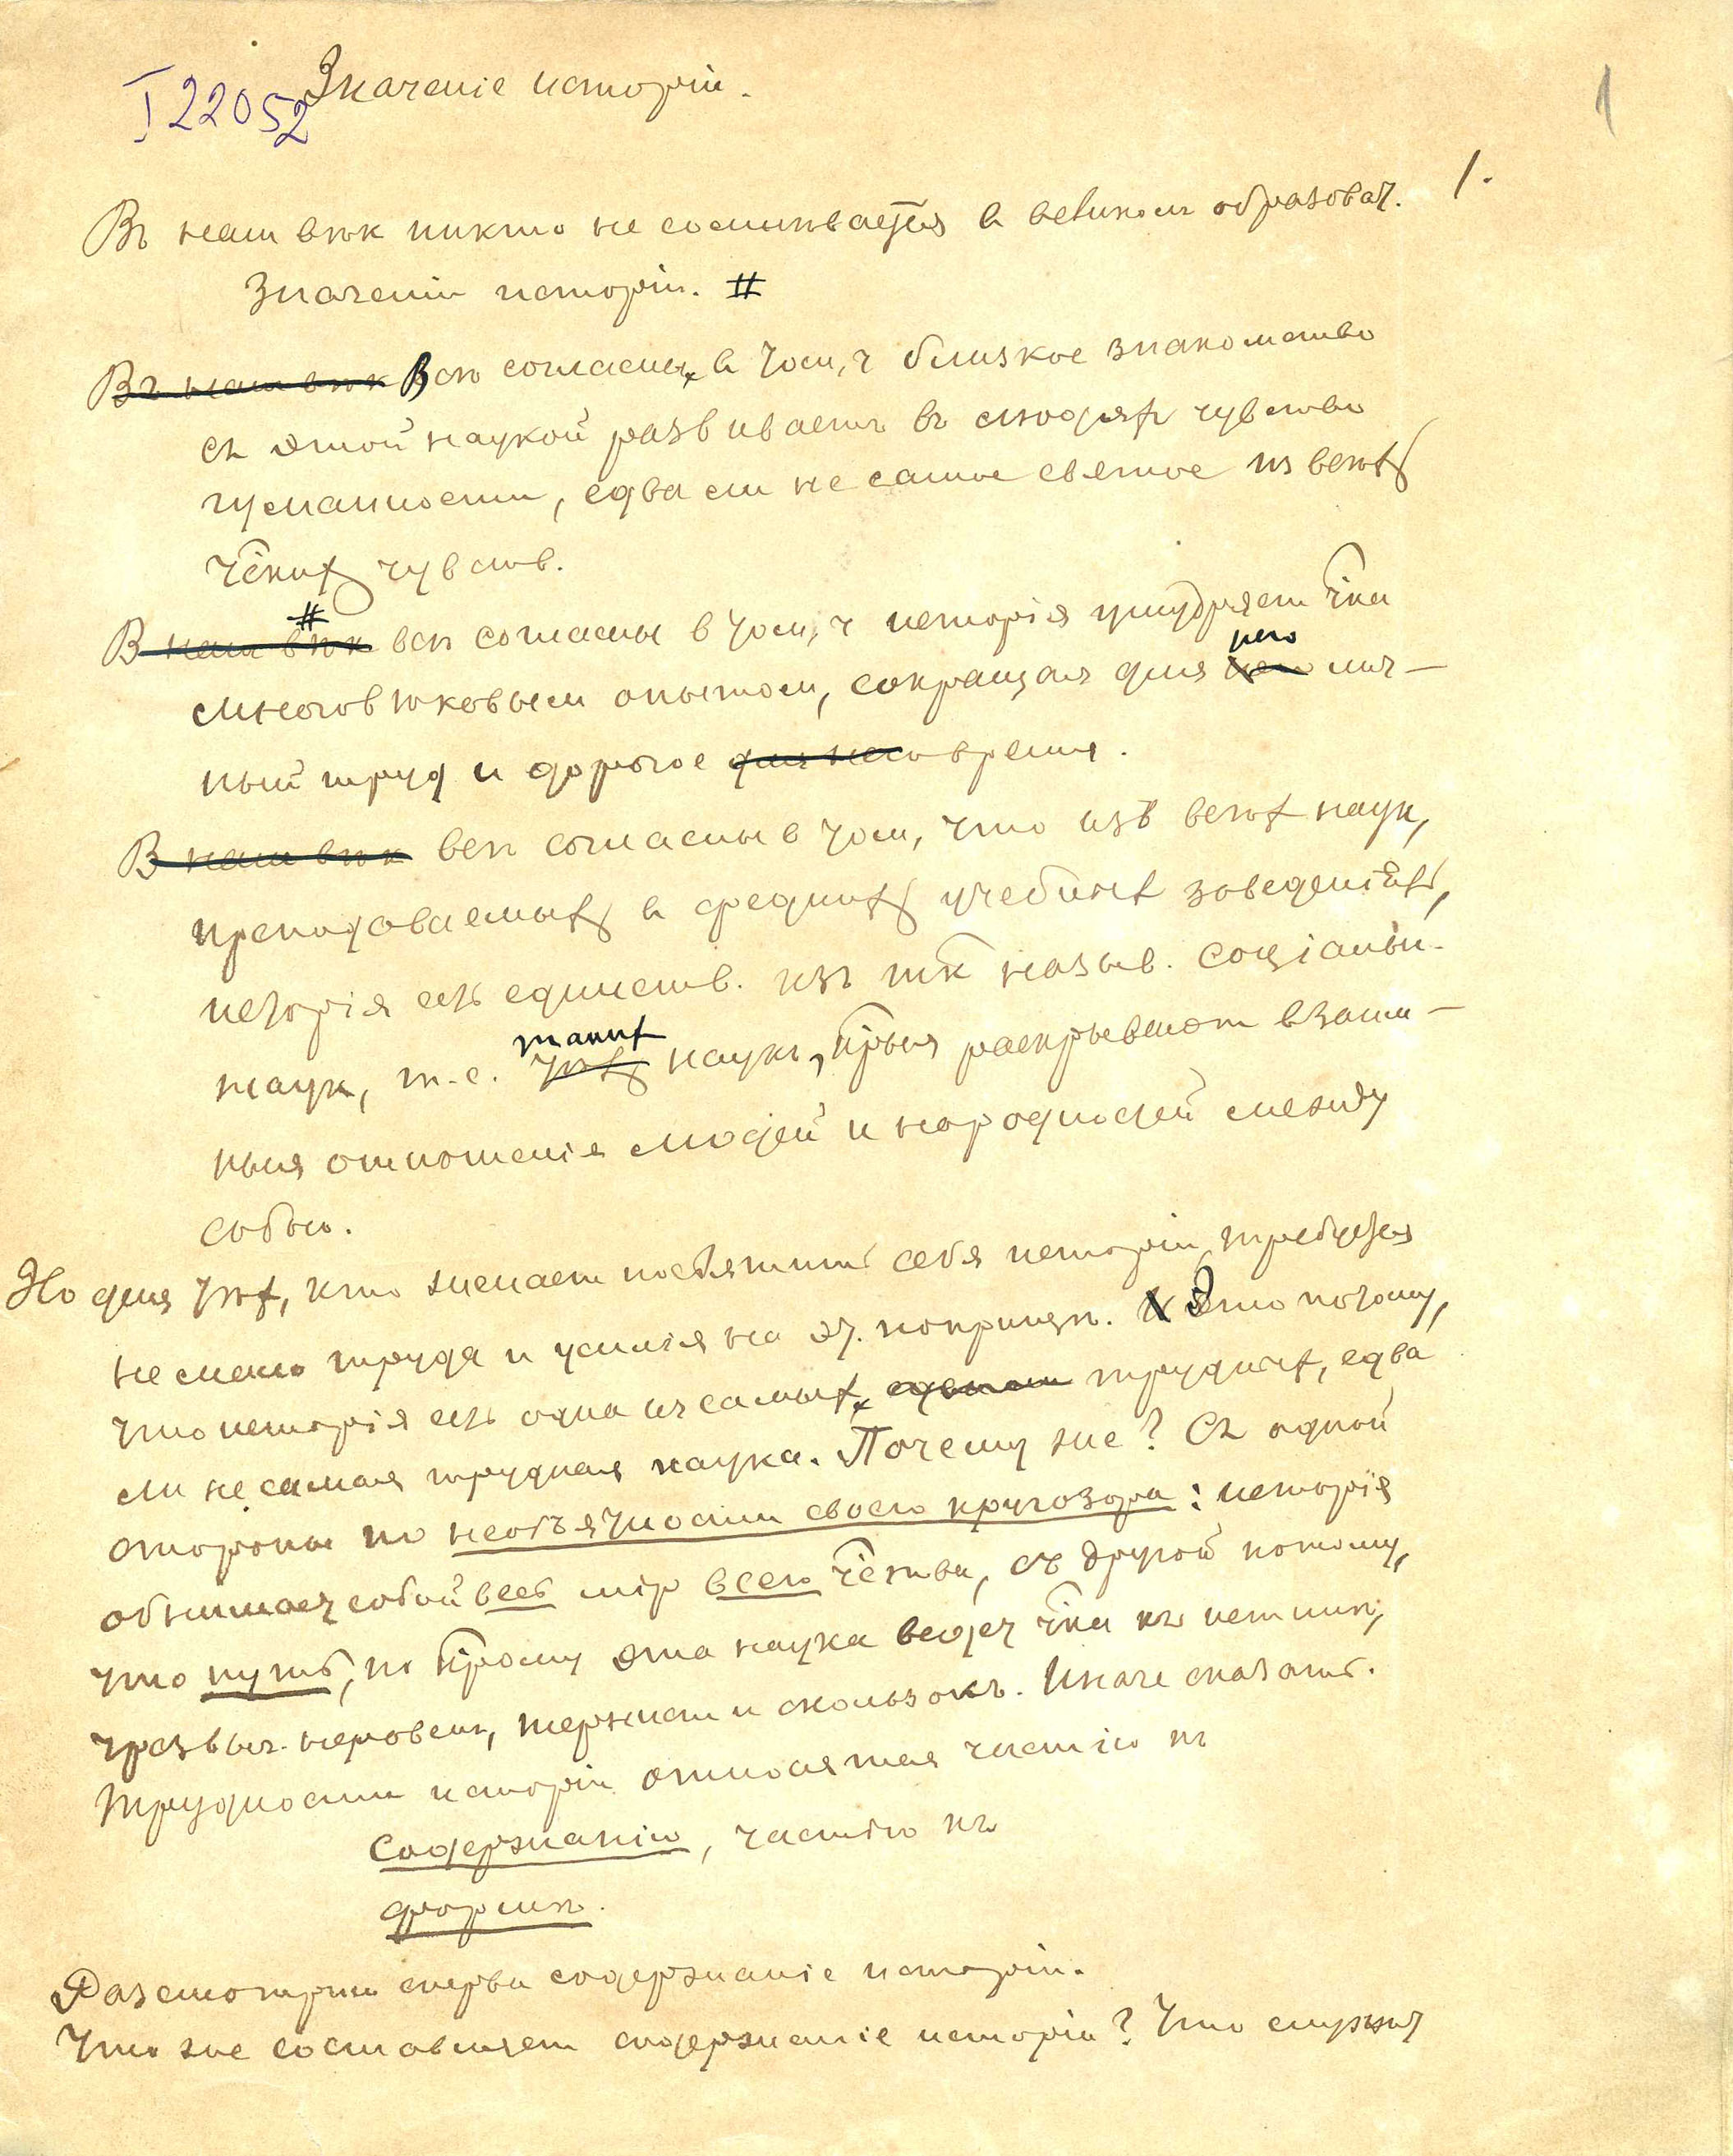 1
I 22052 Значеніе исторіи.
1.
Въ наш вѣк никто не сомнѣвается в великом образоват.
значеніи исторіи. #
Въ наш вѣк Всѣ согласны в том, ч близкое знакомство
съ этой наукой развиваетъ въ людях чувство
гуманности, едва ли не самое святое из всѣх
чских чувств.
#
В наш вѣк всѣ согласны в том, ч исторія умудряет чка
него
многовѣковым опытом, сокращая для него лич-
ный труд и дорогое для него время.
В наш вѣк всѣ согласны в том, что изъ всѣх наук,
преподаваемых в средних учебных заведеніях,
исторія есть единств. изъ тк назыв. соціальн.
таких
наук, т.е. тѣх наукъ, крыя раскрывают взаим-
ныя отношенія людей и народностей между
собою.
Но для тѣх, кто желает посвятить себя исторіи, требуется
не мало труда и усилія на эт. поприщѣ. Это потому,
что исторія есть одна из самых трудных, едва
ли не самая трудная наука. Почему же? Съ одной
стороны по необъятности своего кругозора: исторія
обнимает собой весь мір всего чства, съ другой потому,
что путь, по крому эта наука ведет чка къ истинѣ,
чрезвыч. неровен, тернист и скользокъ. Иначе сказать.
Трудности исторіи относятся частію къ
содержанію, частію къ
формѣ.
Разсмотрим сперва содержаніе исторіи.
Что же составляет содержаніе исторіи? Что служит